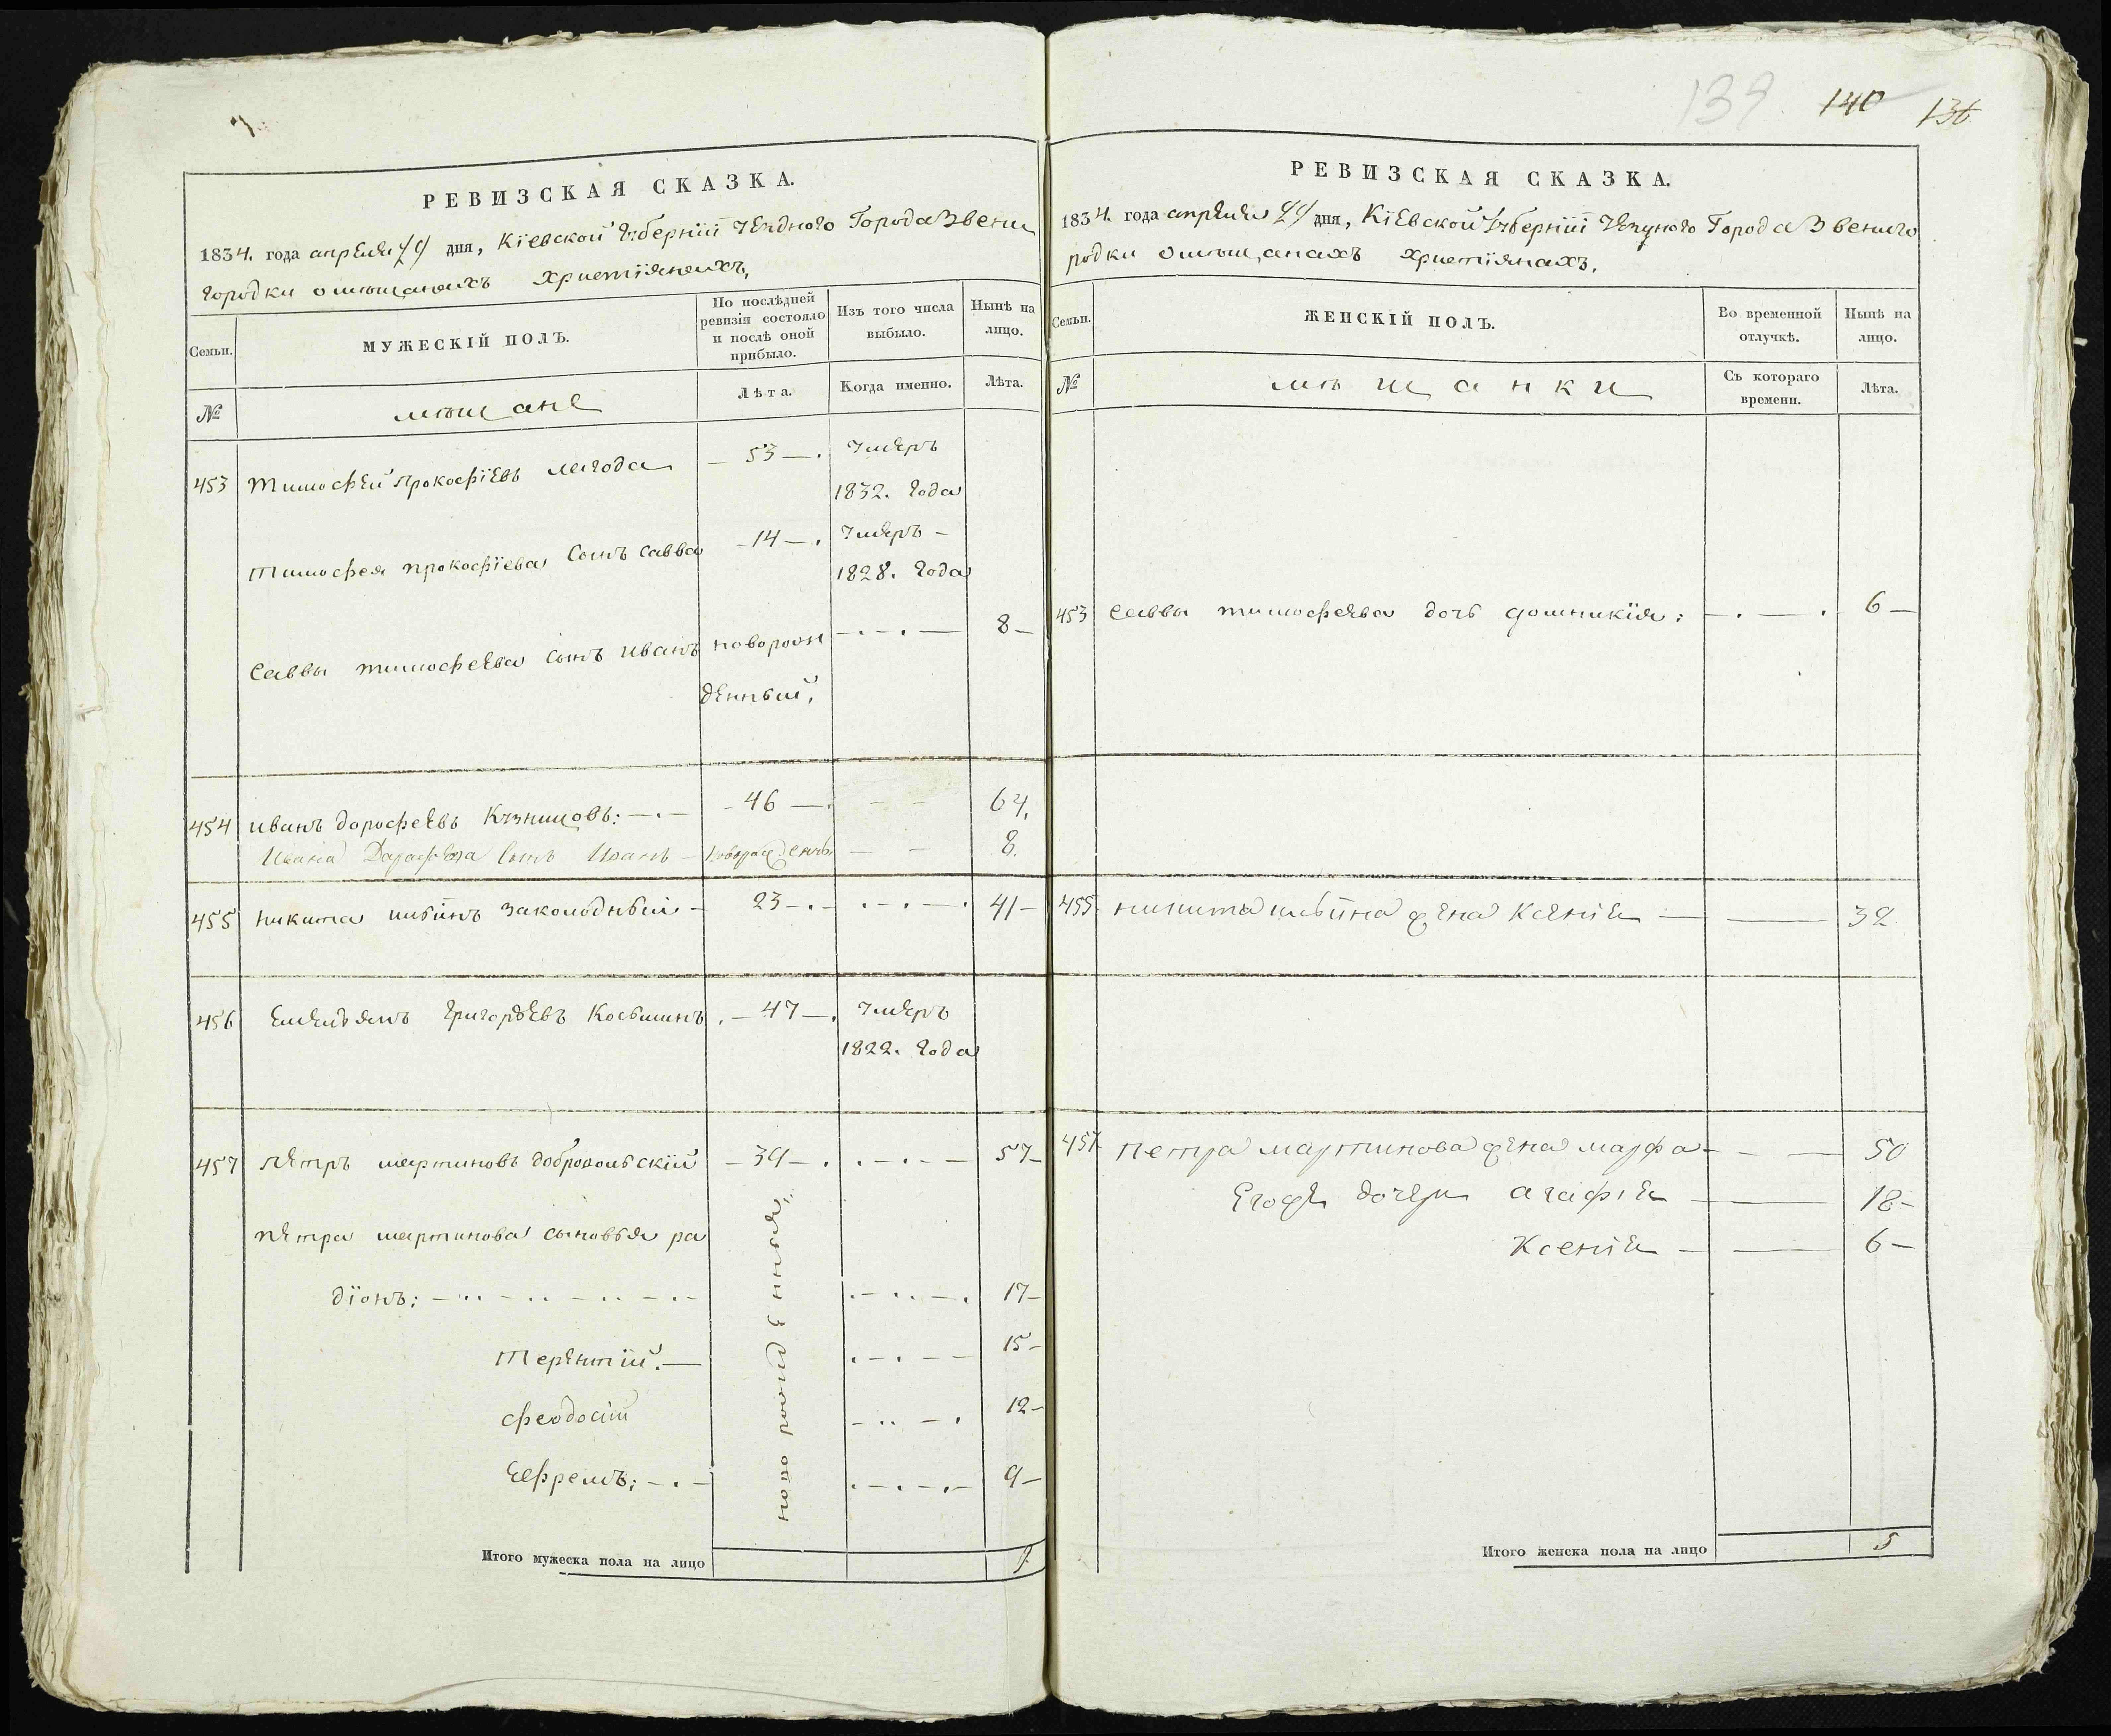 139 140 136
РЕВИЗСКАЯ СКАЗКА.
1834. года апреля 29 дня, Кіевской Губерніи Уездного Города Звени
городки о мещанахъ христіянахъ,
Семьи. МУЖЕСКІЙ ПОЛЪ. По послѣдней ревизіи состояло и послѣ оной прибыло. Изъ того числа выбыло. Нынѣ на лицо.
№ мещане Лѣта. Когда именно. Лѣта.
453 Тимофей Прокофіевъ Лагода 53 Умеръ
1832. Года
Тимофея Прокофіева сынъ Савва 14 Умеръ
1828. Года
Саввы Тимофеева сынъ Иванъ новорож 8
денный,
454 Иванъ Дорофеевъ Кузнецовъ: 46 64,
Ивана Дорофеева сынъ Иванъ новорожденны 8.
455 Никита Ильинъ Заколодный 23 41
456 Емельянъ Григорьевъ Косминъ 47 Умеръ
1822. Года
457 Петръ Мартиновъ Добровольскій 39 57
Петра Мартинова сыновья ра
діонъ: 17
Терентій. 15
Феодосій 12
Ефремъ: 9
ново рожденныя,
Итого мужеска пола на лицо 9
РЕВИЗСКАЯ СКАЗКА.
1834. года апреля 29 дня, Кіевской Губерніи Уездного Города Звениго
родки о мещанахъ христіянахъ,
Семьи. ЖЕНСКІЙ ПОЛЪ. Во временной отлучкѣ. Нынѣ на лицо.
№ мещанки Съ котораго времени. Лѣта.
453 Саввы Тимофеева дочь Домникія: 6
455 Никиты Ильина жена Ксенія 32
457 Петра Мартинова жена Марфа 50
Егоже дочери Агафія 18
Ксенія 6
Итого женска пола на лицо 5